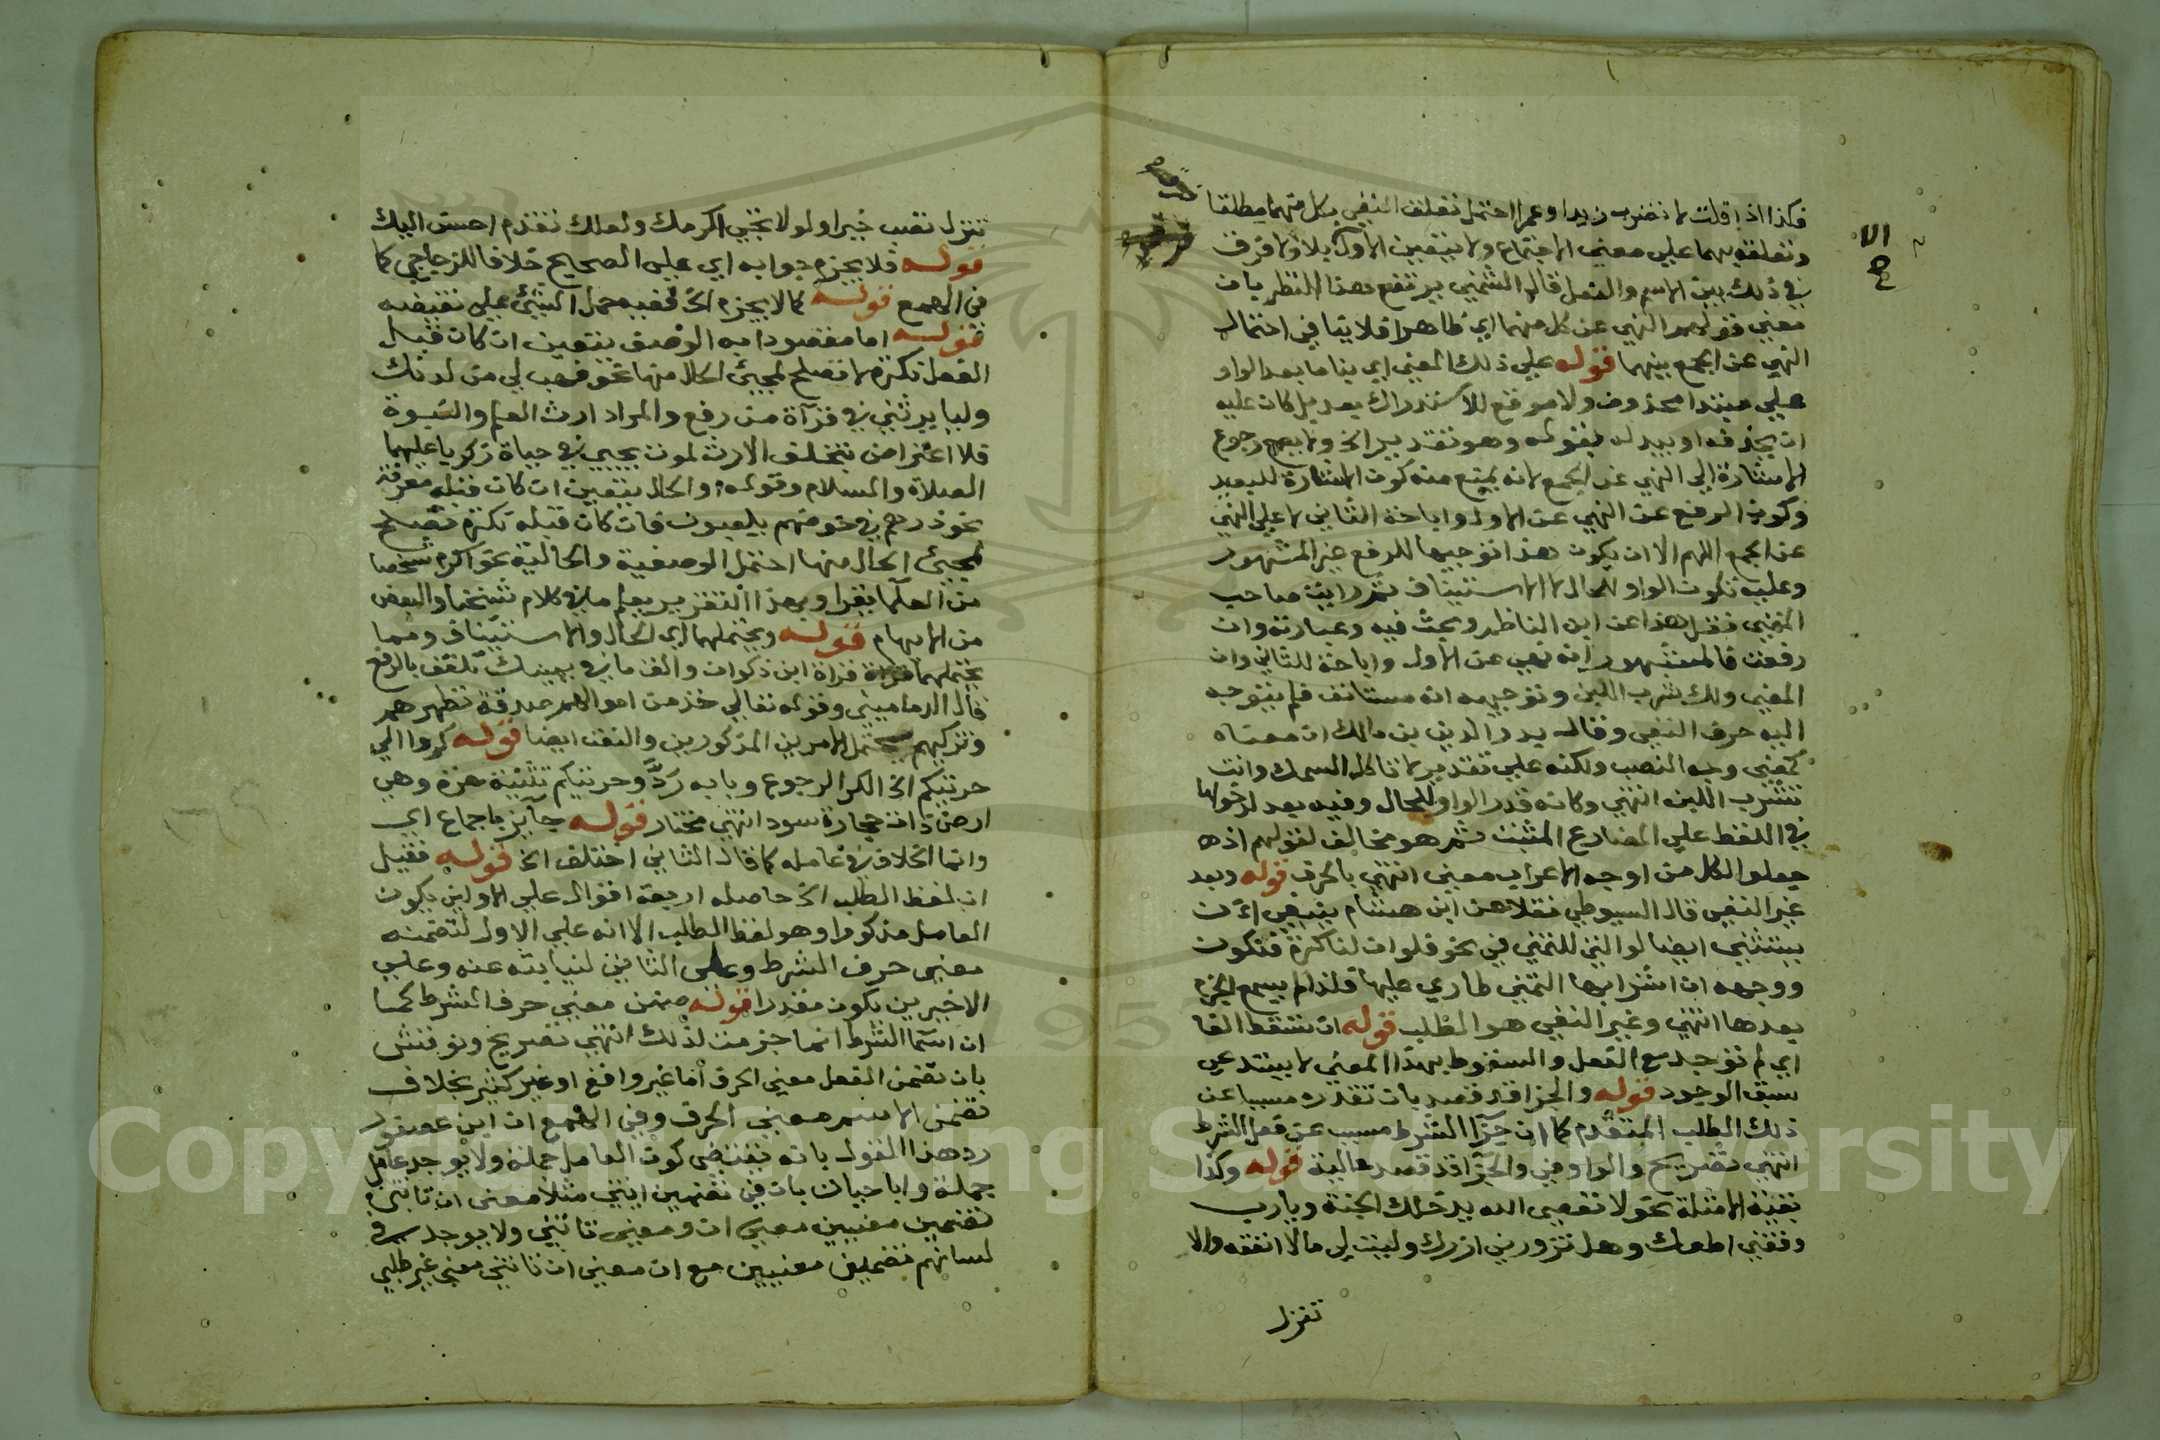 فكذا اذا قلت لا تضرب زيدا وعمرا احتمل تعلق النهي بكل منهما مطلقا
وتعلقه بهما علي معني الاجتماع ولا يتعين الاول بلا ولا فرق
في ذلك بين الاسم والفعل قال الشمني يرتفع هذا النظر بان
معني قولهم النهي عن كل منهما اي ظاهرا فلا ينافي احتمال
النهي عن الجمع بينهما قوله علي ذلك المعني اي بنا ما بعد الواو
علي مبتدا محذوف ولا موقع للاستدراك بعد بل كان عليه
ان يحذفه او يبدله بقوله وهو تقدير الخ ولا يصح رجوع
الاشارة الي النهي عن الجمع لانه يمنع منه كون الاشارة للبعيد
وكون الرفع عن النهي عن الاول واباحة الثاني لا علي النهي
عن الجمع اللهم الا ان يكون هذا توجيها للرفع غير المشهور
وعليه تكون الواو للحال لا الاستيناف ثم رايت صاحب
المغني نقل هذا عن ابن الناظم وبحث فيه وعبارته وان
رفعت فالمشهور انه نهي عن الاول واباحة للثاني وان
المعني ولك شرب اللبن وتوجيهه انه مستانف فلم يتوجه
اليه حرف النفي وقال بدر الدين بن مالك ان معناه
كمعني وجه النصب ولكنه علي تقدير لا تاكل السمك وانت
تشرب اللبن انتهي وكانه قدر الواو للحال وفيه بعد لدخولها
في اللفظ علي المضارع المثبت ثم هو مخالف لقولهم اذ
جعلوا لكل من اوجه الاعراب معني انتهي بالحرف قوله وبعد
غير النفي قال السيوطي نقلا عن ابن هشام ينبغي ان
يستثني ايضا لو التي للتمني في نحو فلو ان لنا كرة فنكون
ووجهه ان اشرابها التمني طاري عليها فلذا لم يسمع الجزم
بعدها انتهي وغير النفي هو الطلب قوله ان تسقط الفا
اي لم توجد مع الفعل والسقوط بهذا المعني لا يستدعي
سبق الوجود قوله والجزا قد قصد بان تقدره مسببا عن
ذلك الطلب المتقدم كما ان جزآ الشرط مسبب عن فعل الشرط
انتهي تصريح والواو في والجزآ قد قصد حالية قوله وكذا
بقية الامثلة نحو لا تعصي الله يدخلك الجنة ويا رب
وفقني اطعك وهل تزورني ازرك وليت لي مالا انفقه والا
تنزل
تنزل تصب خيرا ولولا تجي اكرمك ولعلك تقدم احسن اليك
قوله فلا يجزم جوابه اي علي الصحيح خلافا للزجاجي كما
في الهمع قوله كما لا يجزم الخ ففيه حمل الشئ علي نقيضه
قوله اما مقصودا به الوصف يتعين ان كان قبل
الفعل نكرة لا تصلح لمجيئ الحال منها نحو فهب لي من لدنك
وليا يرثني في قرآة من رفع والمراد ارث العلم والنبوة
فلا اعتراض بتخلف الارث لموت يحيي في حياة زكريا عليهما
الصلاة والسلام وقوله او الحال يتعين ان كان قبله معرفة
نحو ذرهم في خوضهم يلعبون فان كان قبله نكرة تصلح
لمجيئ الحال منها احتمل الوصفية والحالية نحو اكرم شخصا
من العلما يقرا وبهذا التقرير يعلم ما في كلام شيخنا والبعض
من الايهام قوله ويحتملهما اي الحال والاستيناف ومما
يحتملهما قراة ابن ذكوان والق ما في يمينك تلقف بالرفع
قال الدماميني وقوله تعالي خذ من اموالهم صدقة تطهرهم
وتزكيهم يحتمل الامرين المذكورين والنعت ايضا قوله كروا الي
حرتيكم الخ الكر الرجوع وبابه رد وحرتيكم تثنية حرة وهي
ارض ذات حجارة سود انتهي مختار قوله جآئز باجماع اي
وانما الخلاف في عامله كما قال الثاني اختلف الخ قوله فقيل
ان لفظ الطلب الخ حاصله اربعة اقوال علي الاولين يكون
العامل مذكورا وهو لفظ الطلب الا انه علي الاول لتضمنه
معني حرف الشرط وعلي الثاني لنيابته عنه وعلي
الاخيرين يكون مقدرا قوله ضمن معني حرف الشرط كما
ان اسمآ الشرط انما جزمت لذلك انتهي تصريح ونوقش
بان تضمن الفعل معني الحرف اما غير واقع او غير كثير بخلاف
تضمن الاسم معني الحرف وفي الهمع ان ابن عصفور
رد هذا القول بانه يقتضي كون العامل جملة ولا يوجد عامل
جملة وابا حيان بان في تضمين ايتني مثلا معني ان تاتني
تضمين معنيين معني ان ومعني تاتني ولا يوجد في
لسانهم تضمين معنيين مع ان معني ان تاتني معني غير طلبي
Copyright © King Saud University